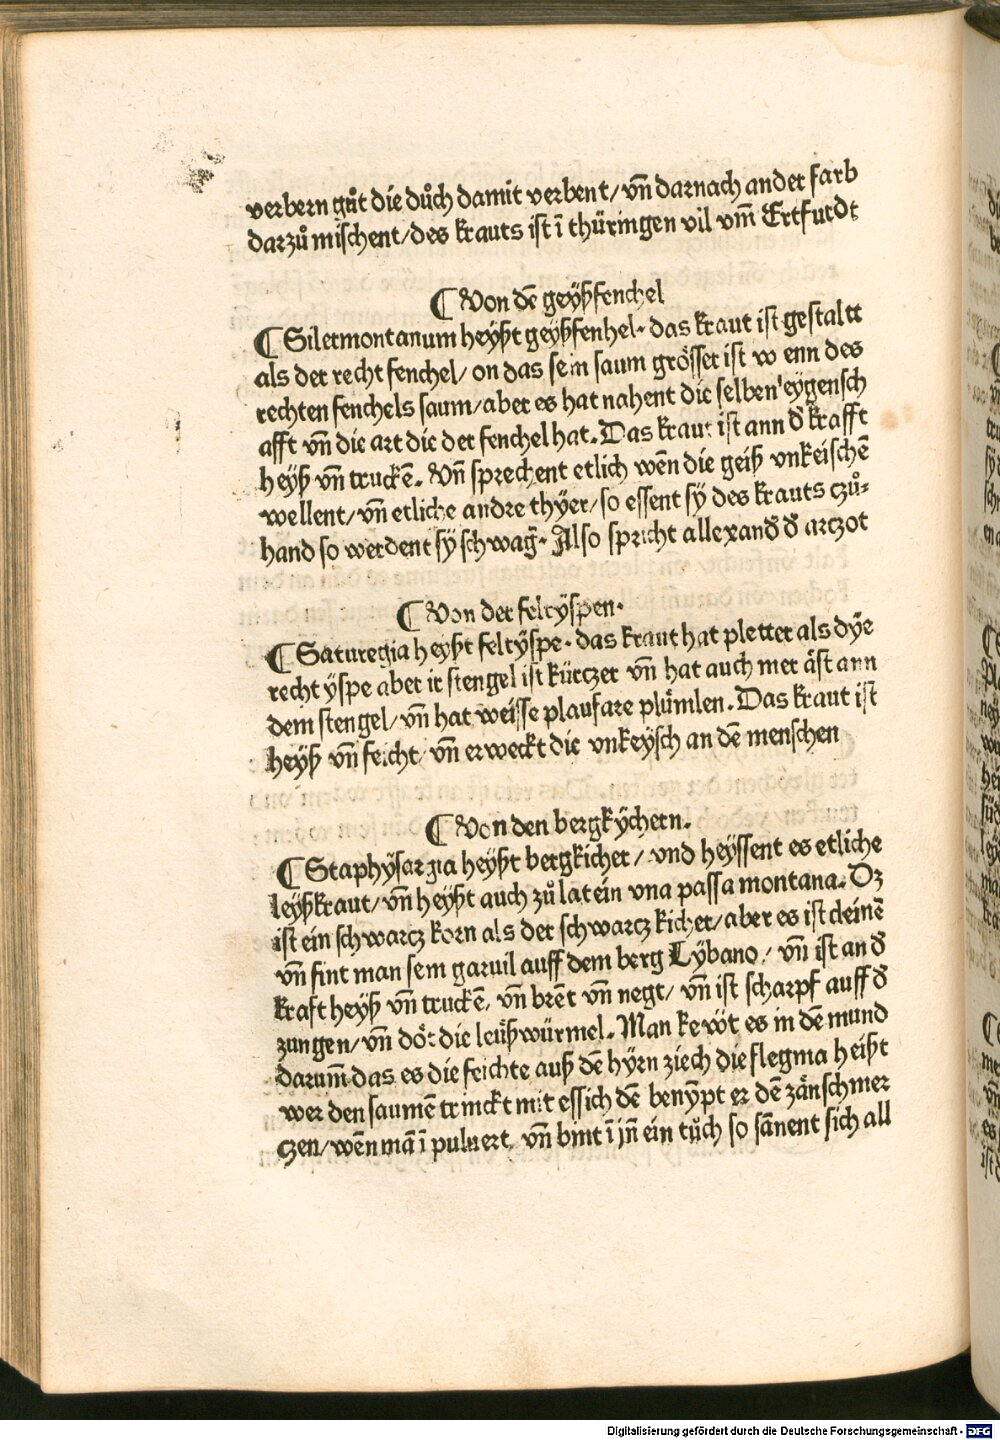 verbern gůt die důch damit verbent/ vn̄ darnach ander farb
darzů mischent/des krauts ist ī thüringen vil vm̄ Ertfurdt
¶ Von dē geÿßfenchel
¶ Silermontanum heyßt geÿßfenhel· das kraut ist gestaltt
als der recht fenchel/ on das sein saum grösser ist w enn des
rechten fenchels saum/aber es hat nahent die selben eÿgensch
afft vn̄ die art die der fenchel hat. Das kraut ist ann đ krafft
heÿß vn̄ truckē. Vn̄ sprechent etlich wēn die geiß vnkeischē
wellent/ vn̄ etliche andre thÿer/so essent sÿ des krauts czů⸗
hand so werdent sÿ schwag̃· Also spricht allexanđ đ arczot
¶ Von der feltÿspen·
¶ Saturegia heyßt feltÿspe· das kraut hat pletter als dÿe
recht ÿspe aber ir stengel ist kürczer vn̄ hat auch mer äst ann
dem stengel/ vn̄ hat weisse plaufare plümlen. Das kraut ist
heÿß vn̄ feicht/ vn̄ erweckt die vnkeÿsch an dē menschen
¶ Von den bergkÿchern.
¶ Staphÿsarzia heyßt bergkicher/ vnd heyssent es etliche
leÿßkraut/ vn̄ heyßt auch zů latein vna passa montana. Dz
ist ein schwarcz korn als der schwarcz kicher/aber es ist cleinē
vn̄ fint man sein garvil auff dem berg Lÿbano/ vn̄ ist an đ
kraft heÿß vn̄ truckē/ vn̄ brēt vn̄ negt/ vn̄ ist scharpf auff đ
zungen/ vn̄ döt die leüßwürmel. Man kewt es in dē mund
darum̄ das es die feichte auß dē hÿrn ziech die flegma heißt
wer den saumē trinckt mit essich dē benÿpt er dē zänschmer
czen/wēn mā ī puluert/ vn̄ bint ī jn̄ ein tůch so sānent sich all
Digitalisierung gefördert durch die Deutsche Forschungsgemeinschaft - DFG